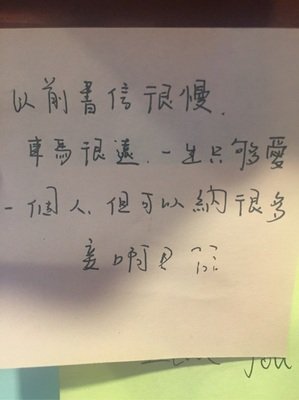 以前書信很慢.
車馬很遠.一生只够愛
一個人.但可以納很多
妾啊
you